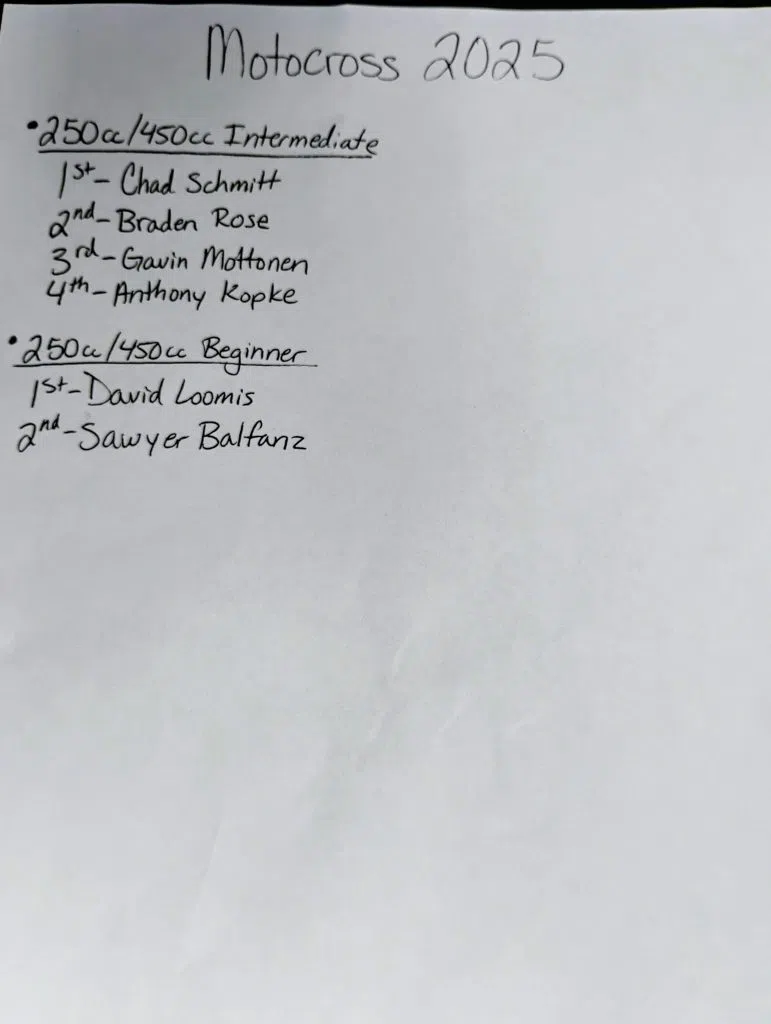 Motocross 2025
•250cc/450cc Intermediate
1st- Chad Schmitt
2nd- Braden Rose
3rd- Gavin Mottonen
4th- Anthony Kopke
•250cc/450cc Beginner
1st- David Loomis
2nd- Sawyer Balfanz